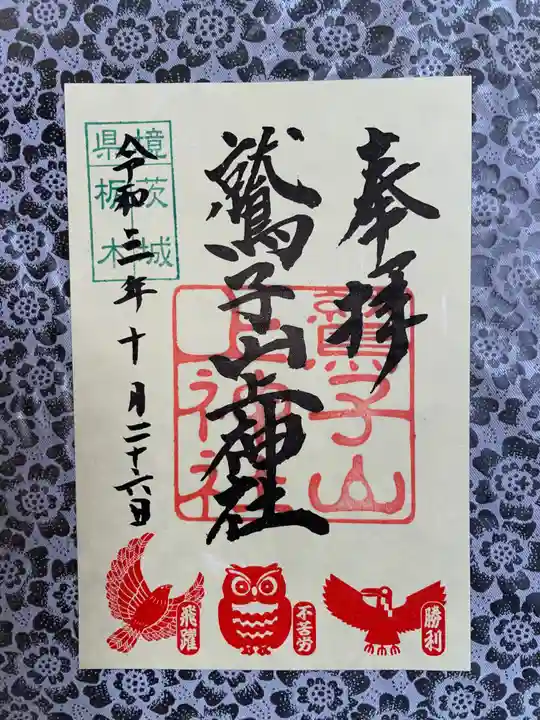 奉拝
鷲子山上神社
鷲子山
上神社
境茨城
県栃木
令和三年十月二十六日
飛躍
不苦労
勝利